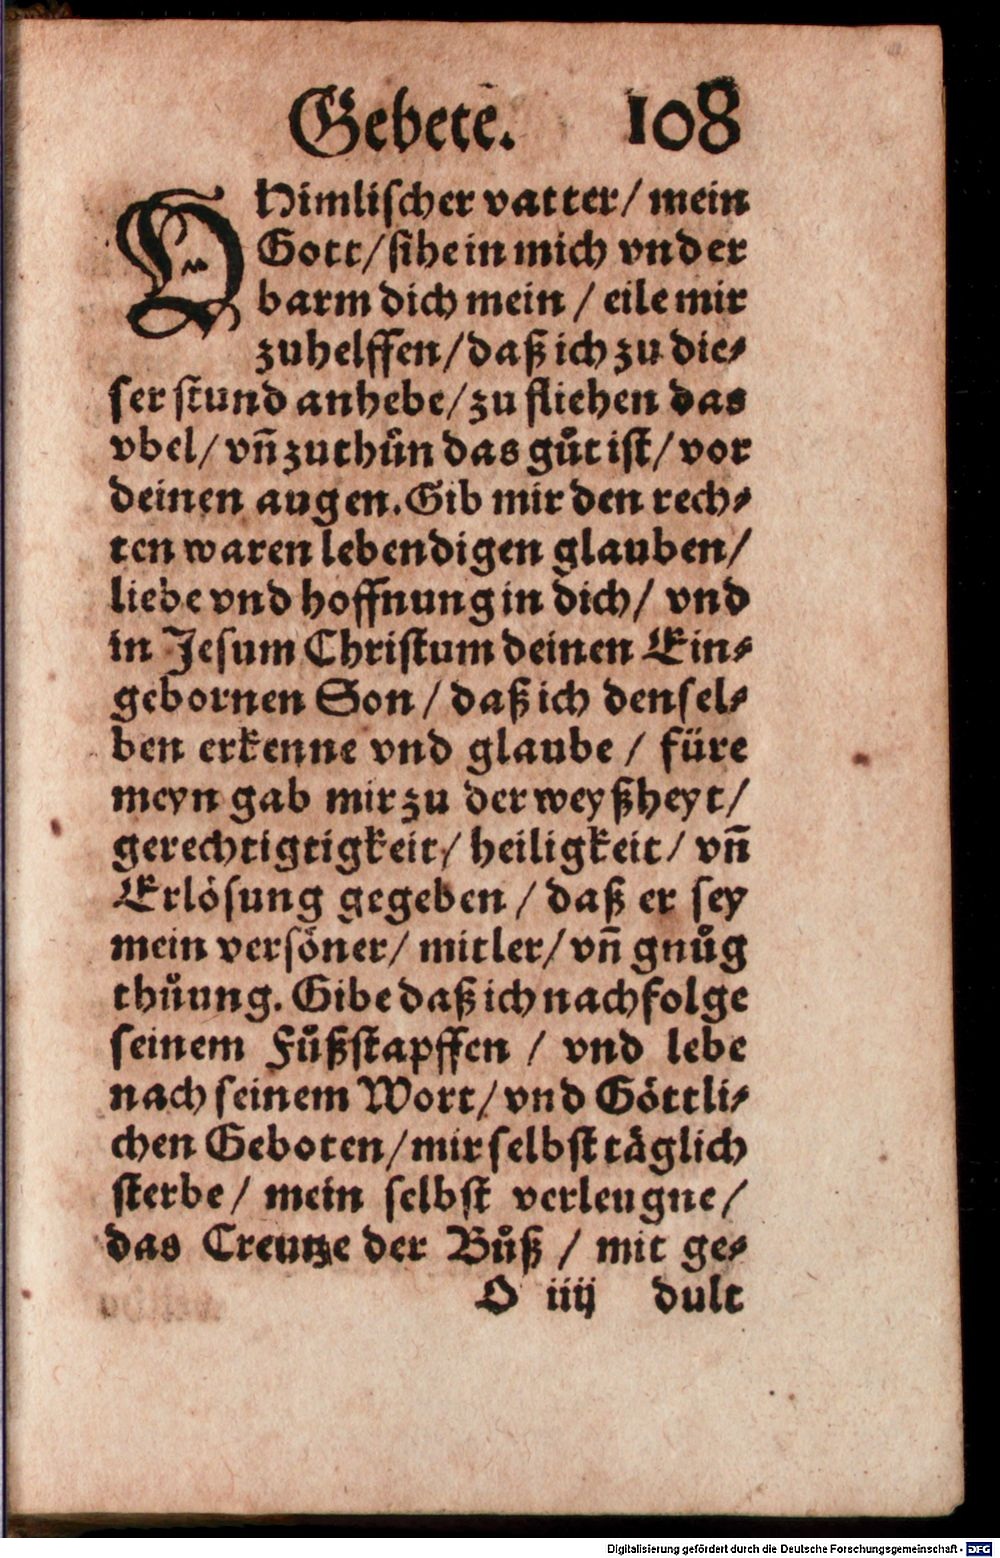 Gebete. 108
O Himlischer vatter / mein
Gott / sihe in mich vnd er
barm dich mein / eile mir
zuhelffen / daß ich zu die⸗
ser stund anhebe / zu fliehen das
vbel / vñ zuthůn das gůt ist / vor
deinen augen. Gib mir den rech⸗
ten waren lebendigen glauben /
liebe vnd hoffnung in dich / vnd
in Jesum Christum deinen Ein⸗
gebornen Son / daß ich densel⸗
ben erkenne vnd glaube / füre
meyn gab mir zu der weyßheyt /
gerechtigtigkeit / heiligkeit / vñ
Erlösung gegeben / daß er sey
mein versöner / mitler / vñ gnůg
thůung. Gibe daß ich nachfolge
seinem Fůßstapffen / vnd lebe
nach seinem Wort / vnd Göttli⸗
chen Geboten / mir selbst täglich
sterbe / mein selbst verleugne /
das Creutze der Bůß / mit ge⸗
O iiij dult
Digitalisierung gefördert durch die Deutsche Forschungsgemeinschaft - DFG